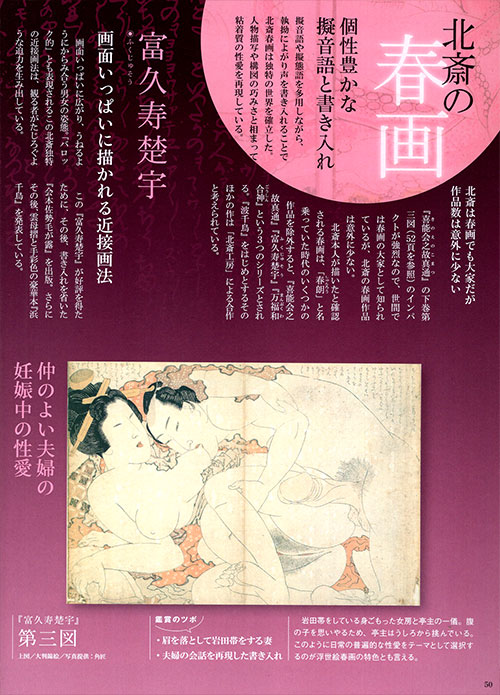 北斎の
春画
個性豊かな
擬音語と書き入れ
擬音語や擬態語を多用しながら、
執拗によがり声を書き入れることで
北斎春画は独特の世界を確立した。
人物描写や構図の巧みさと相まって
粘着質の性愛を再現している。
北斎は春画でも大家だが
作品数は意外に少ない
『喜能会之故真通』の下巻第
三図(52頁を参照)のインパ
クトが強烈なので、世間で
は春画の大家として知られ
ているが、北斎の春画作品
は意外に少ない。
北斎本人が描いたと確認
される春画は、「春朗」と名
乗っていた時代のいくつかの
作品を除外すると、『喜能会之
故真通』『富久寿楚宇』『万福和
合神』という3つのシリーズとされ
る。『波千鳥』をはじめとするその
ほかの作は「北斎工房」による合作
と考えられている。
富久寿楚宇
ふくじゅそう
画面いっぱいに描かれる近接画法
画面いっぱいに広がり、うねるよ
うにからみ合う男女の姿態。「バロッ
ク的」とも表現されるこの北斎独特
の近接画法は、観る者がたじろぐよ
うな迫力を生み出している。
この『富久寿楚宇』が好評を得た
ために、その後、書き入れを省いた
『会本佐勢毛が露』を出版。さらに
その後、雲母摺と手彩色の豪華本『浜
千鳥』を発表している。
仲のよい夫婦の
妊娠中の性愛
『富久寿楚宇』
第三図
上図/大判錦絵/写真提供:角匠
鑑賞のツボ
・眉を落として岩田帯をする妻
・夫婦の会話を再現した書き入れ
岩田帯をしている身ごもった女房と亭主の一儀。腹
の子を思いやるため、亭主はうしろから挑んでいる。
このように日常の普遍的な性愛をテーマとして選択す
るのが浮世絵春画の特色とも言える。
50